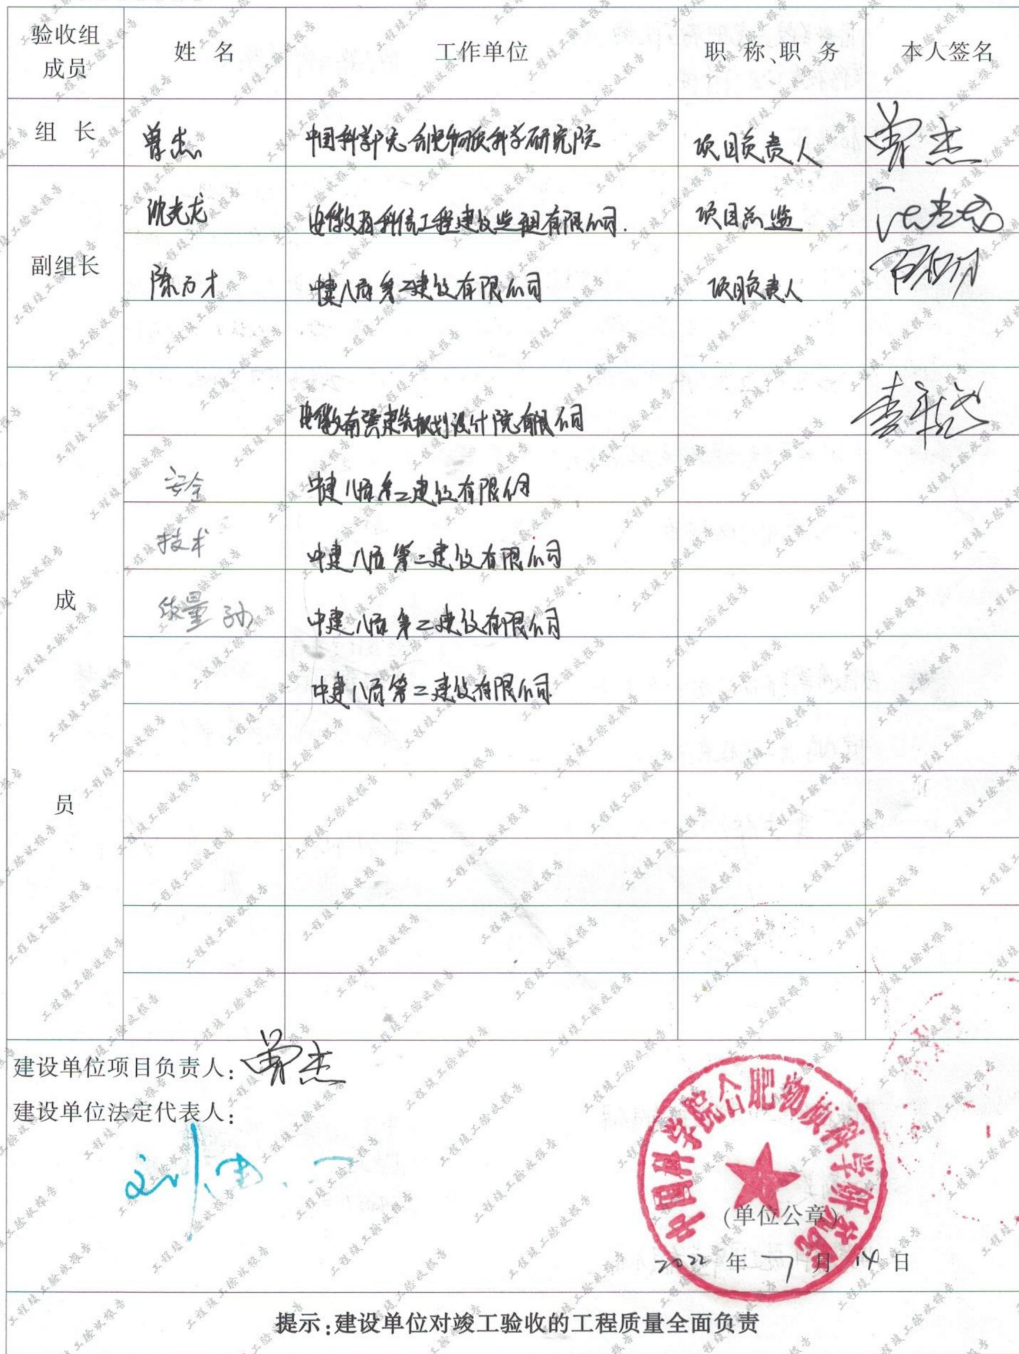 验收组成员 姓名 工作单位 职称、职务 本人签名
组长 曾杰 中国科学院合肥物质科学研究院 项目负责人 曾杰
副组长
沈光龙 项目总监
陈万才 中建八局第二建设有限公司 项目负责人
成员
规划设计院有限公司
安全 中建八局第二建设有限公司
技术 中建八局第二建设有限公司
质量 孙 中建八局第二建设有限公司
中建八局第二建设有限公司
建设单位项目负责人：曾杰
建设单位法定代表人：
中国科学院合肥物质科学研究院
(单位公章)
2022 年 7 月 14 日
提示：建设单位对竣工验收的工程质量全面负责
工程竣工验收报告